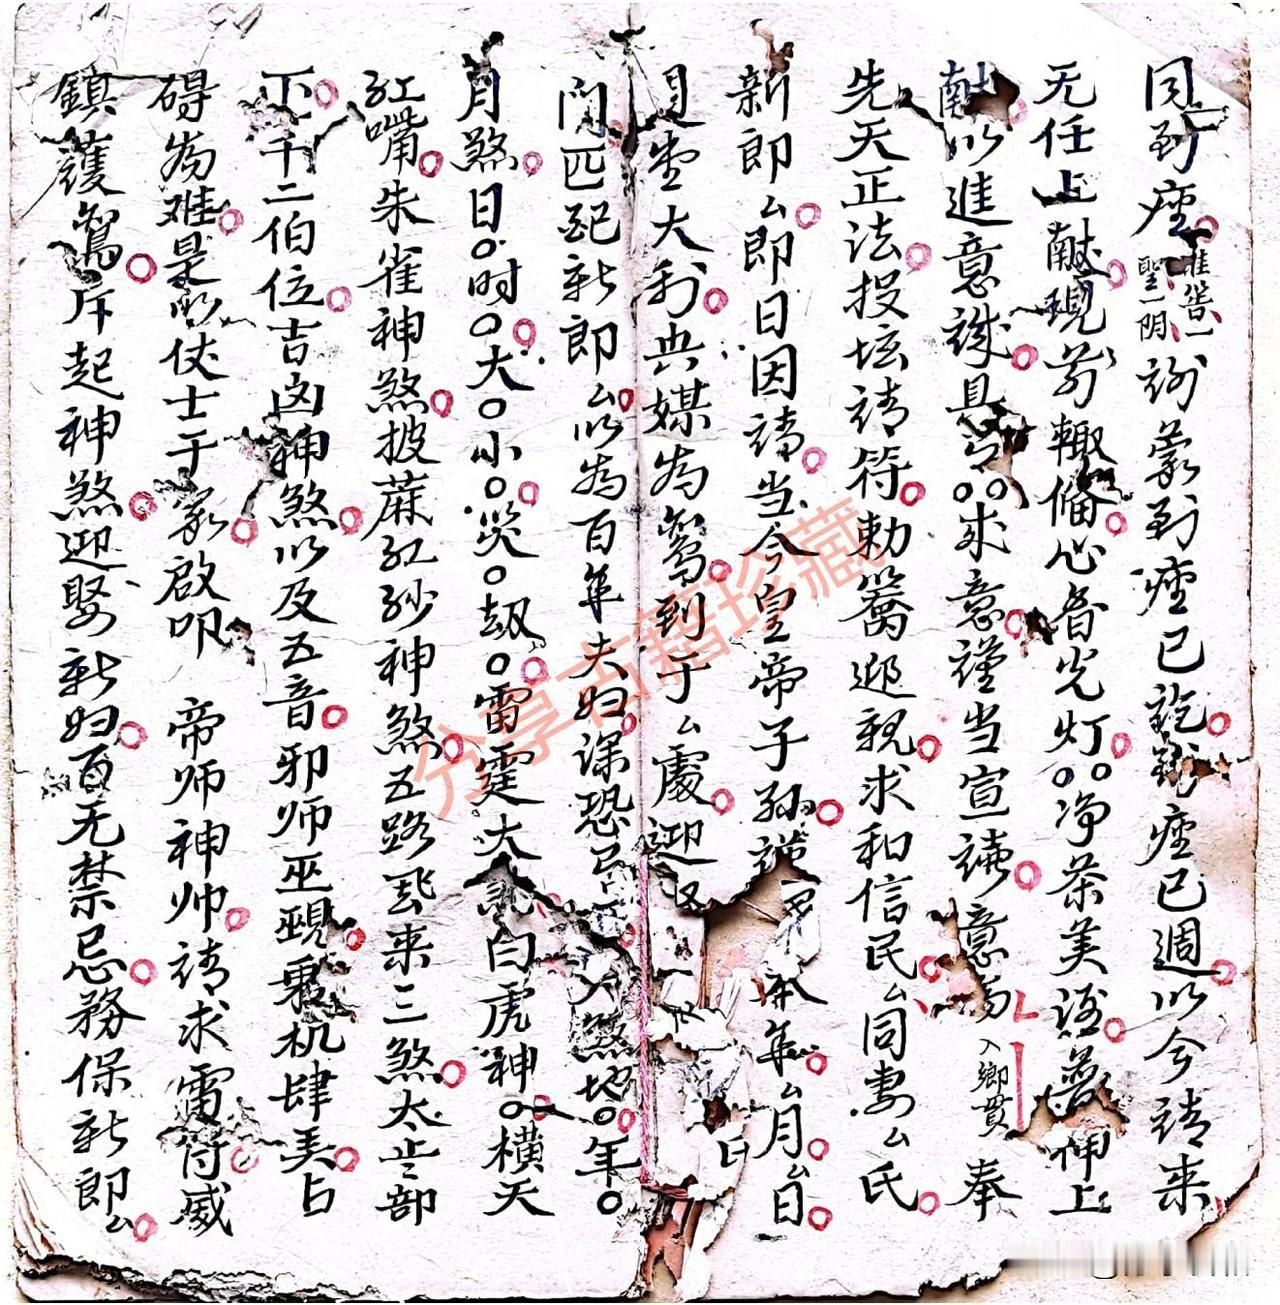 同到壇 準告一聖一阴 谢蒙到壇已訖到壇已週以今請来
无任上献現前輙俻心香光灯净茶美酒普伸上
献以進意諴具呈求意谨当宣读意旨 入鄉貫 奉
先天正法投坛請符敕篱迎親求和信民厶同妻厶氏
新郎厶即日因請当今皇帝子孙本年厶月厶日
周堂大利央媒为鸾到于厶處迎 氏
門匹配新郎厶以为百年夫妇深恐 煞地年
月煞日时大小災劫雷霆大 白虎神横天
紅嘴朱雀神煞披蔴紅砂神煞五路飛来三煞太歲部
下千二伯位吉凶神煞以及五音邪师巫觋乘机肆美占
碍为难是以仗士于家啟叩 帝师神帅請求雷符威
鎮護鸾斥起神煞迎娶新妇百无禁忌務保新郎厶
分享古籍珍藏